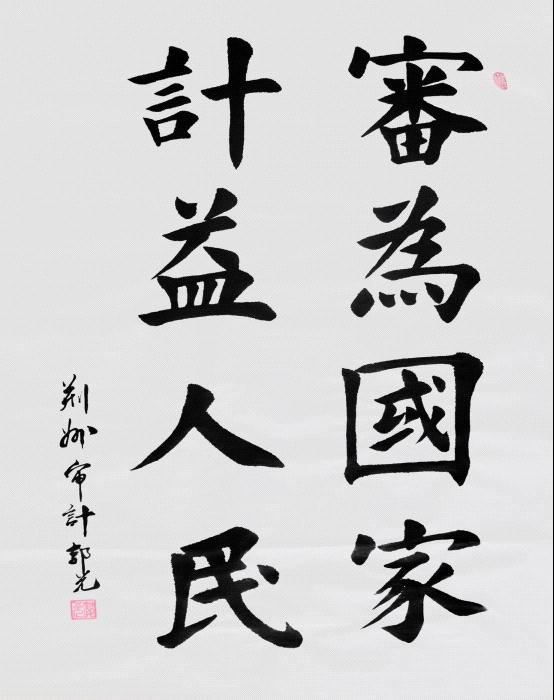 審為國家
計益人民
荆州审計郭光